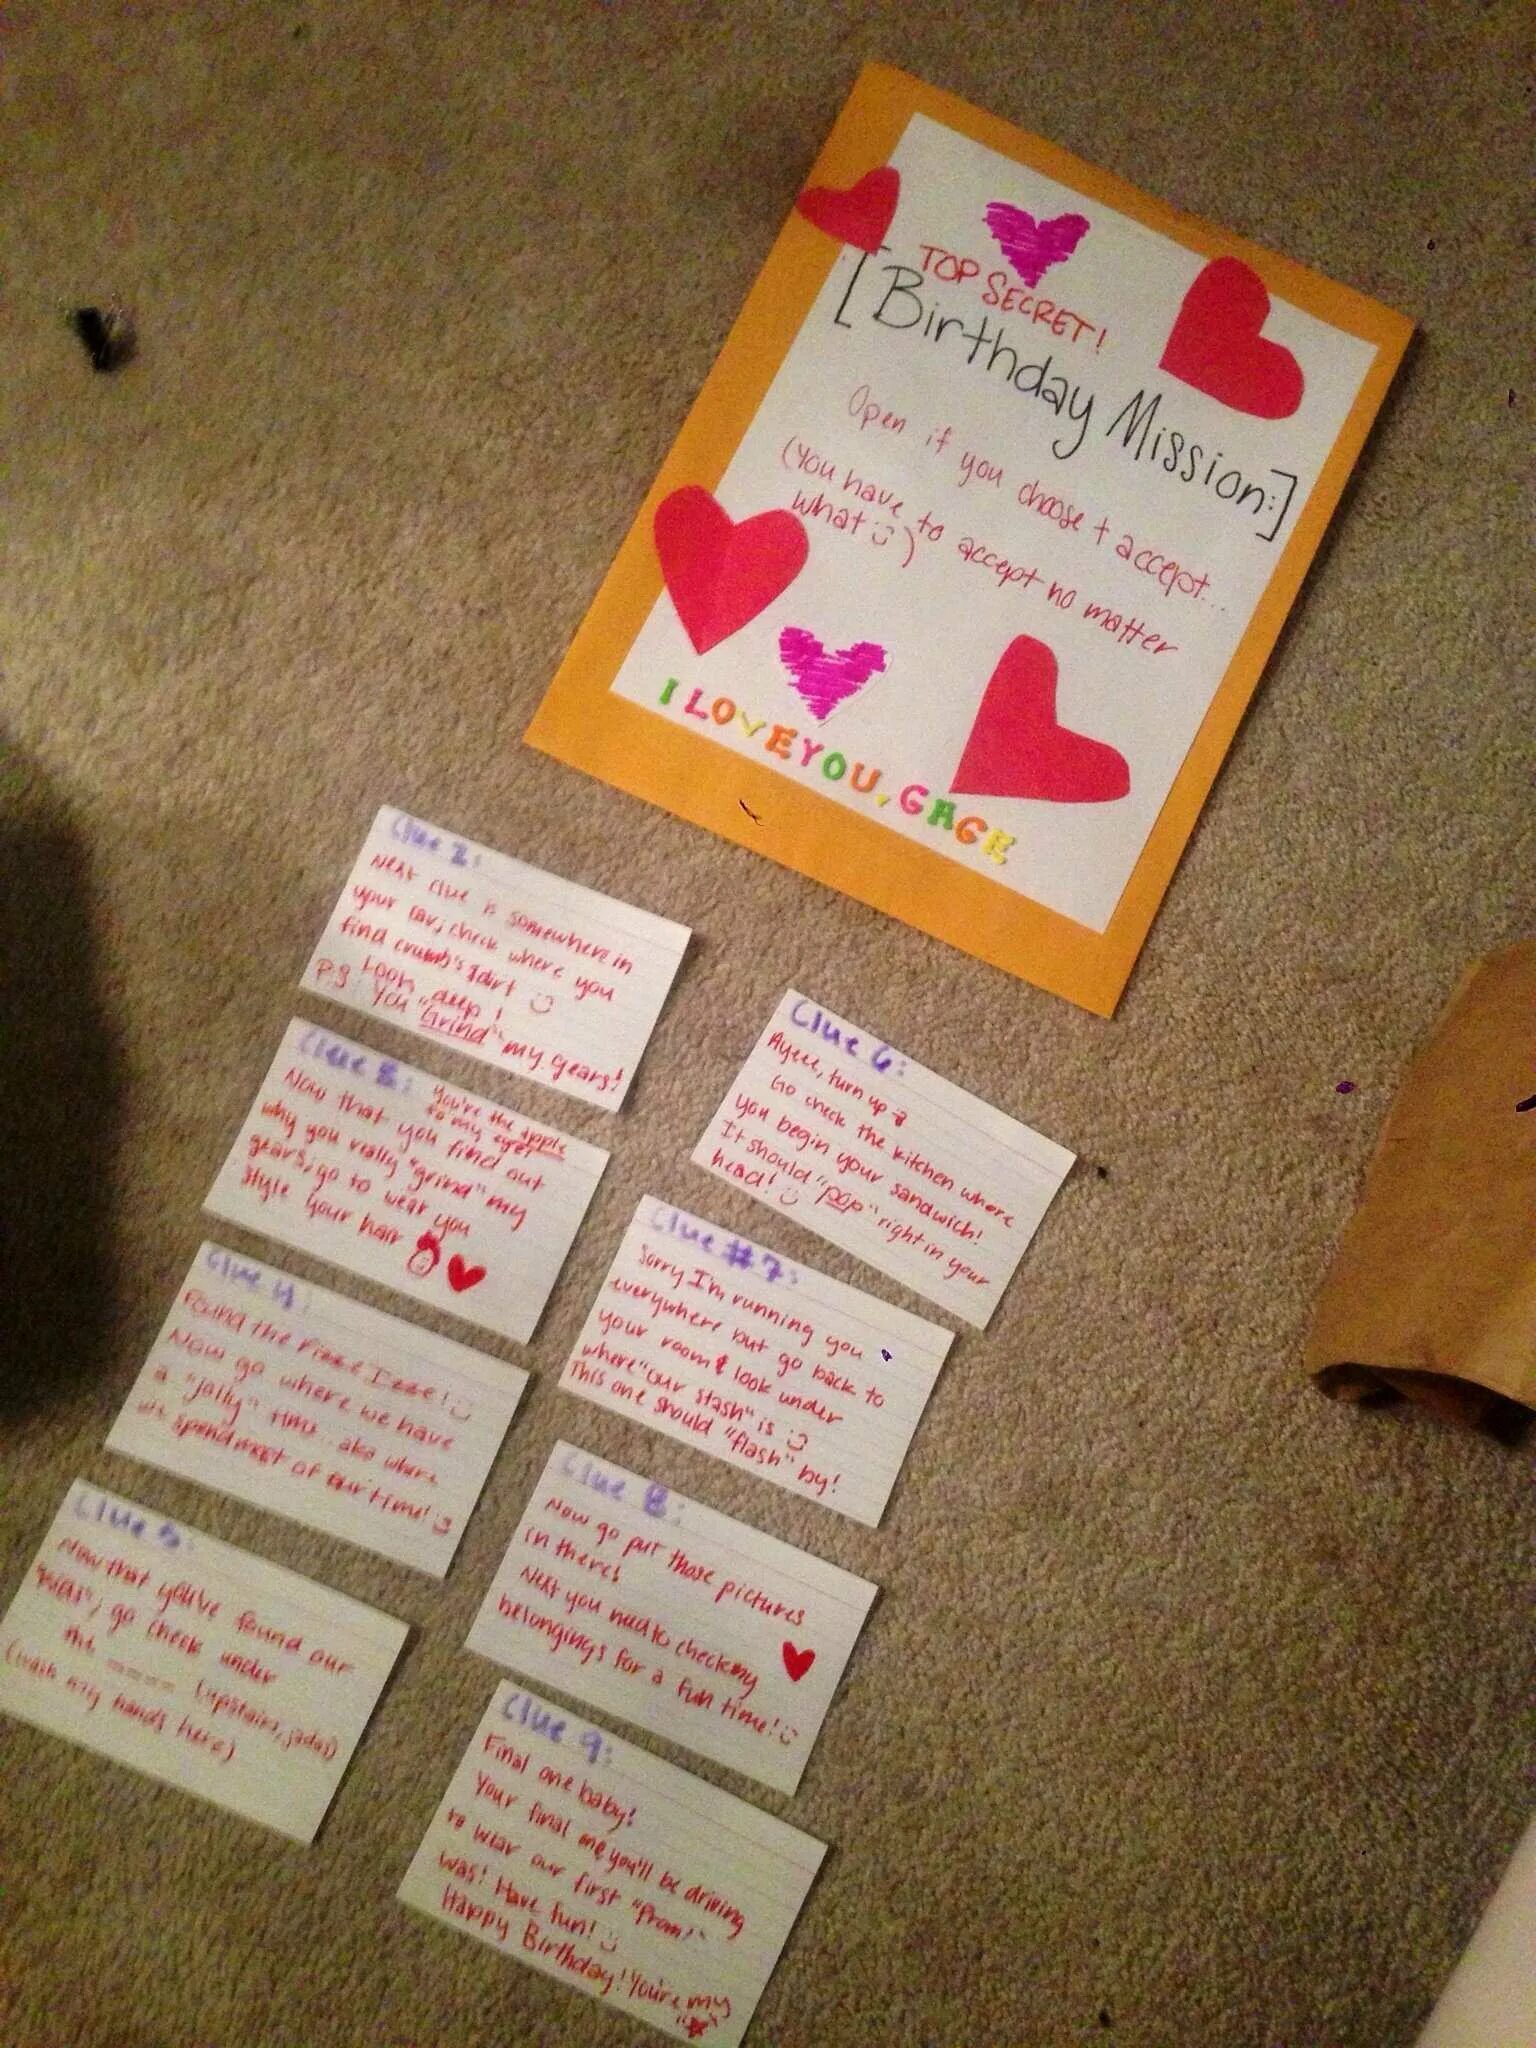 TOP SECRET!
[Birthday Mission:]
Open if you choose + accept...
(You have to accept no matter
what :))
I LOVE YOU, GAGE
Clue 2:
Next clue is somewhere in
your car, check where you
find crumb's & dirt :)
Look deep!
P.S. You "Grind" my gears!
Clue 3:
You're the apple
to my eyes!
Now that you find out
why you really "grind" my
gears, go to wear you
style your hair
Clue 4:
Found the Fizze Izze! :)
Now go where we have
a "jolly" time.. aka where
we spend most of our time! :)
Clue 5:
Now that you've found our
"kids", go check under
the (upstairs, )
(wash my hands here)
Clue 6:
Ayeee, turn up
Go check the kitchen where
you begin your sandwich!
It should "pop" right in your
head! :)
Clue #7:
Sorry I'm running you
everywhere but go back to
your room & look under
where "our stash" is :)
This one should "flash" by!
Clue 8:
Now go put those pictures
in there!
Next you need to check my
belongings for a fun time! :)
Clue 9:
Final one baby!
Your final one, you'll be driving
to wear our first "prom"
was! Have fun! :)
Happy Birthday! You're my